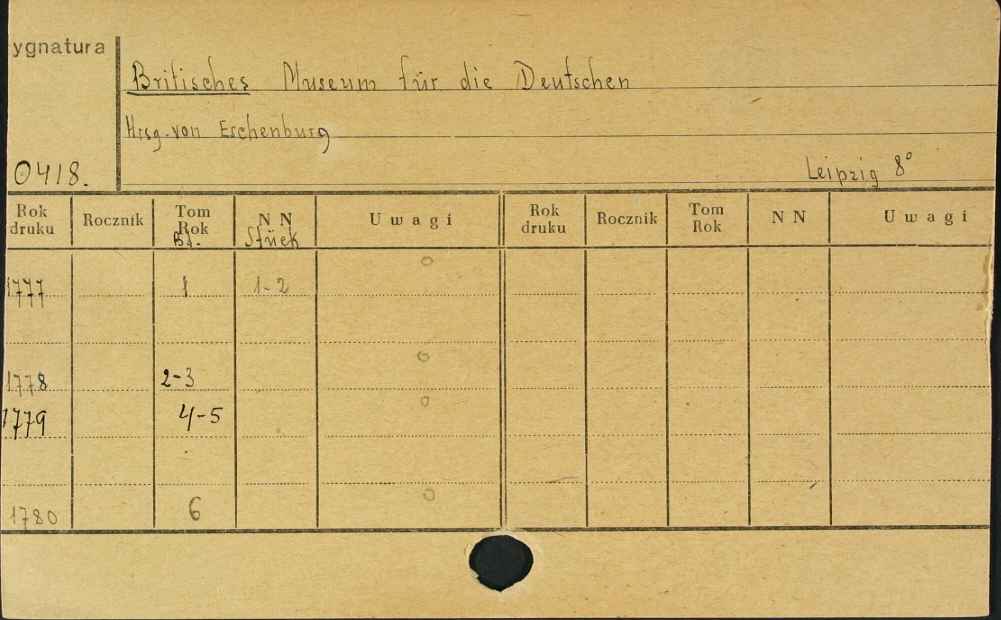 ygnatura
Britisches Museum für die Deutschen
Hrsg. von Eschenburg
0418.
Leipzig 8°
Rok druku Rocznik Tom Rok N N U w a g i Rok druku Rocznik Tom Rok N N U w a g i
Bd. Stück
1777 1 1-2
1778 2-3
1779 4-5
1780 6